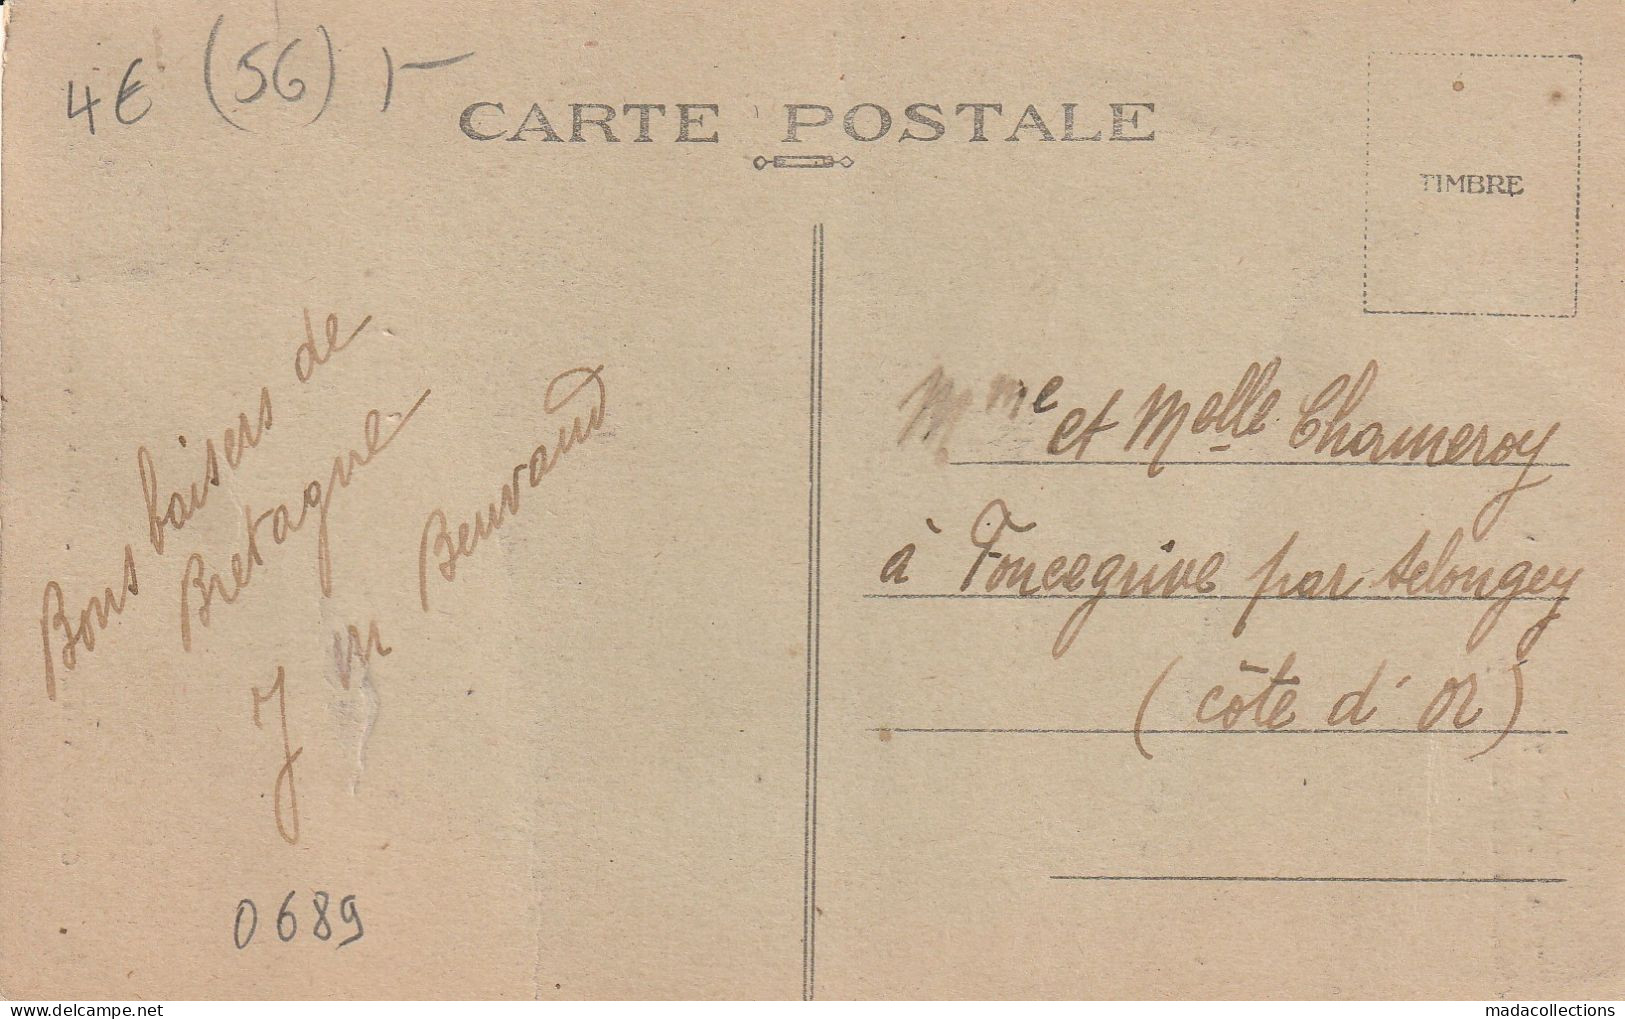 4€ (56) 1-
CARTE POSTALE
TIMBRE
Bons baisers de
Bretagne
J m Beuvaud
0689
Mme et Melle Chameroy
à Foncegrive par Selongey
(côte d'Or)
delcampe.net
madacollections